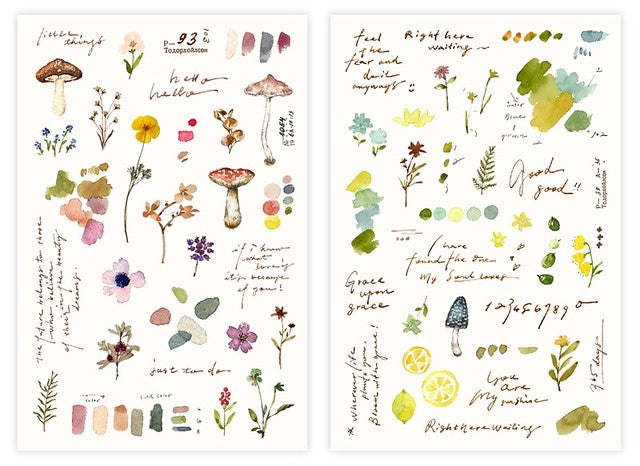 things
P— 93
Тодорхойлсон
hello
hello
The future belongs to those
who believe
in the beauty
of their
dreams.
if i know
what
love is
it's because
of you!
just to do
feel
the
fear and
do it
anyways
Right here
waiting
green
Good
good!!
I have
found the one
my soul loves
Grace
upon
grace
1234567890
Wherever life
plants you
Bloom with grace!
You
are
my
sunshine
Right here waiting
365 days